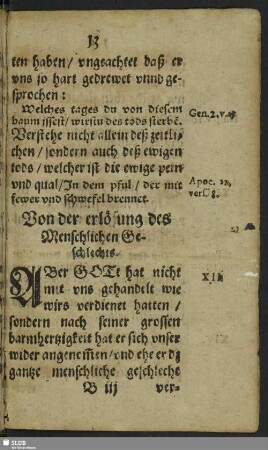 13
ten haben/ vngeachtet daß er
vns so hart gedrewet vnnd ge-
sprochen:
Welches tages du von diesem
baum issest/ wirstu des tods sterbē.
Gen.2.v.17
Verstehe nicht allein deß zeitli-
chen/ sondern auch deß ewigen
tods/ welcher ist die ewige pein
vnd qual/ In dem pful/ der mit
fewer vnd schwefel brennet.
Apoc.
vers. 8.
Von der erlösung des
Menschlichen Ge-
schlechts.
ABer GOtt hat nicht
mit vns gehandelt wie
wirs verdienet hatten/
sondern nach seiner grossen
barmhertzigkeit hat er sich vnser
wider angenom̄en/ vnd ehe er dz
gantze menschliche geschlecht
B iij ver-
SLUB